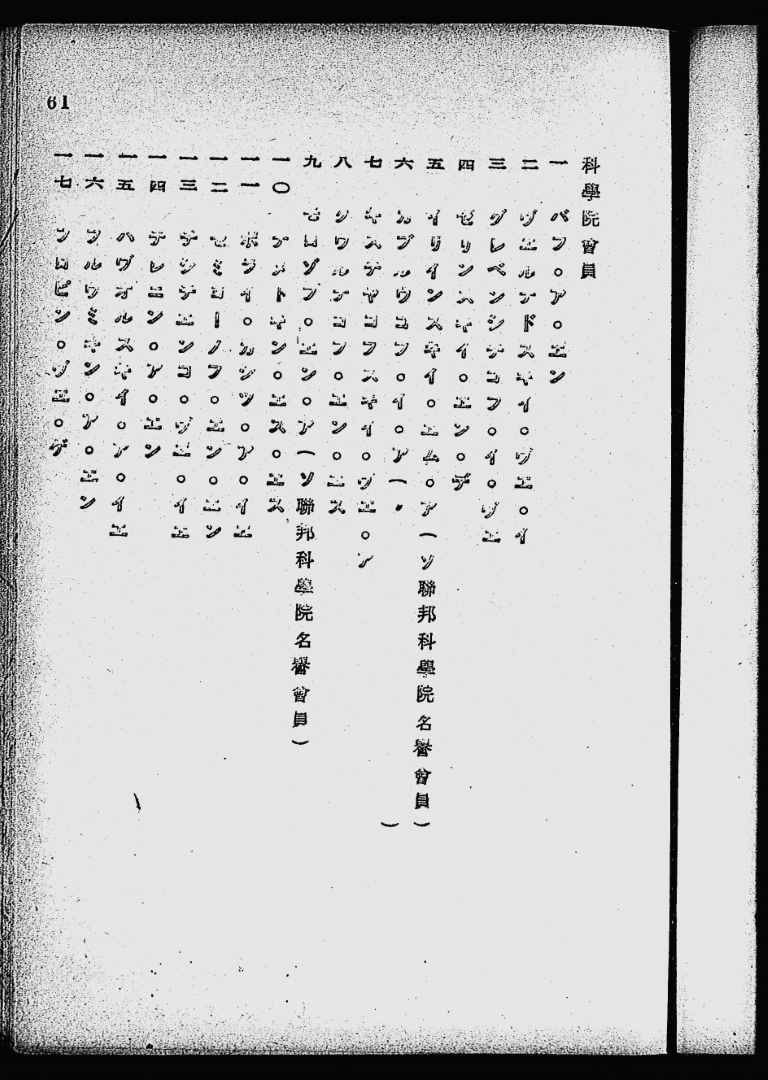 61
科學院會員
一 バフ。ア。エン
二 ヴエルナドスキイ。ヴエ。イ
三 グレベンシチコフ。イ。ヴエ
四 ゼリンスキイ。エン。デ
五 イリインスキイ。エム。ア(ソ聯邦科學院名譽會員)
六 カブルウコフ。イ。ア( 〃 )
七 キスチヤコフスキイ。ヴエ。ア
八 クウルナコフ。エン。エス
九 モロゾフ。エン。ア(ソ聯邦科學院名譽會員)
一〇 ナメトキン。エス。エス
一一 ポライ。カシツ。ア。イエ
一二 セミヨーノフ。エン。エン
一三 チシチエンコ。ヴエ。イエ
一四 テレニン。ア。エン
一五 ハヴオルスキイ。ア。イエ
一六 フルウミキン。ア。エン
一七 フロピン。ヴエ。ゲ